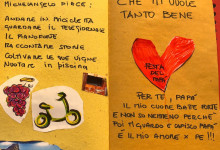 MICHELANGELO PIACE:
ANDARE IN BICICLETTA
GUARDARE IL TELEGIORNALE
IL RAMARRO
RACCONTARE STORIE
COLTIVARE LE TUE VIGNE
NUOTARE IN PISCINA
CHE TI VUOLE
TANTO BENE
FESTA
DEL
PAPÀ
PER TE, PAPÀ
IL MIO CUORE BATTE FORTE
E NON SO NEMMENO PERCHÉ
POI TI GUARDO E CAPISCO PAPÀ
È IL MIO AMORE X TE!!!